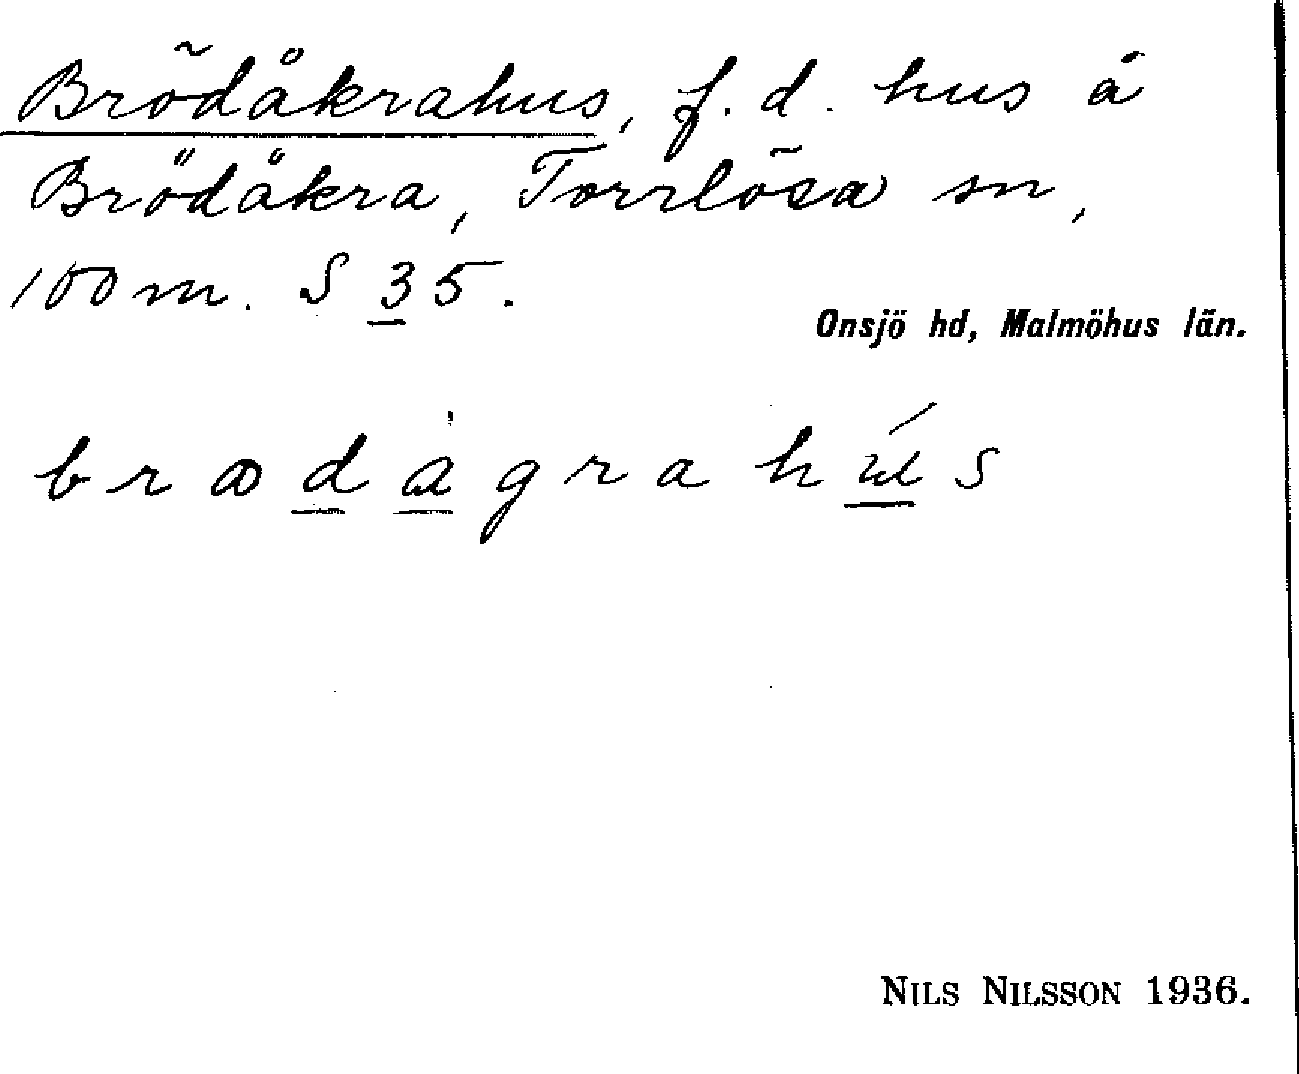 Brödåkrahus, f.d. hus å
Brödåkra, Torrlösa sn,
100 m. S 35.
Onsjö hd, Malmöhus län.
brødågrahús
NILS NILSSON 1936.